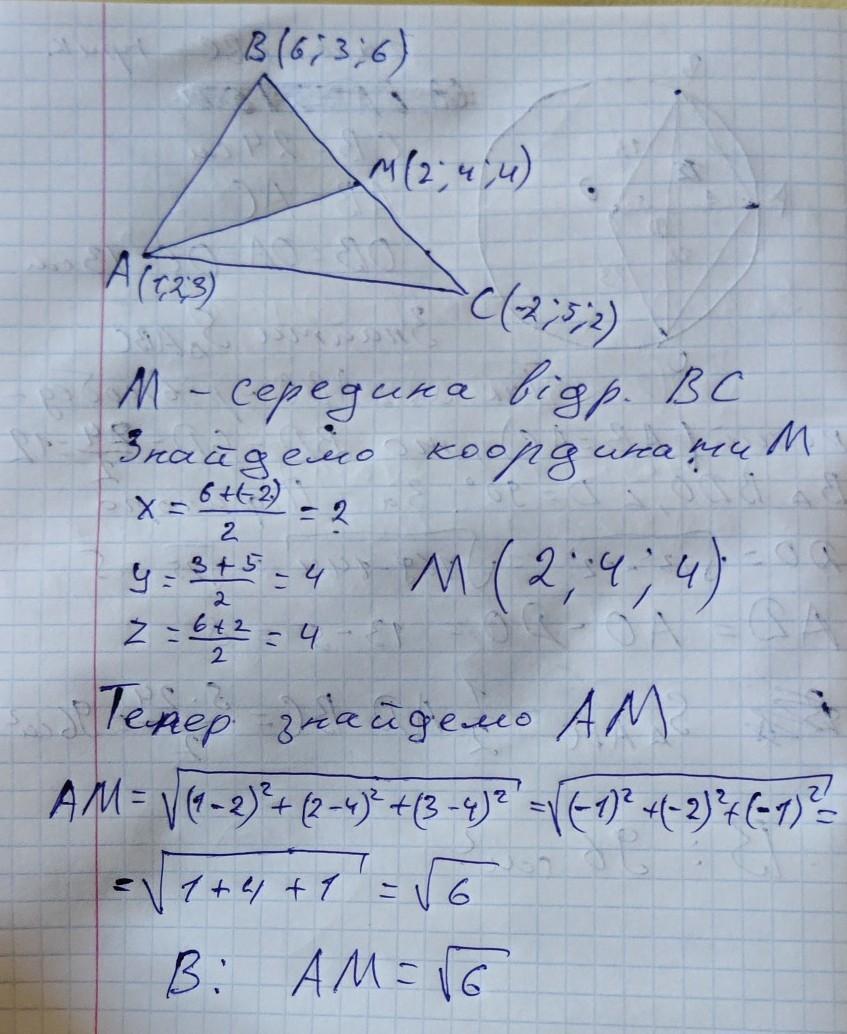 B(6;3;6)
M(2;4;4)
A(1;2;3)
C(-2;5;2)
M - середина відр. BC
Знайдемо координати M
x = \frac{6+(-2)}{2} = 2
y = \frac{3+5}{2} = 4
M(2;4;4)
z = \frac{6+2}{2} = 4
Тепер знайдемо AM
AM = \sqrt{(1-2)^2+(2-4)^2+(3-4)^2} = \sqrt{(-1)^2+(-2)^2+(-1)^2} =
= \sqrt{1+4+1} = \sqrt{6}
В: AM = \sqrt{6}